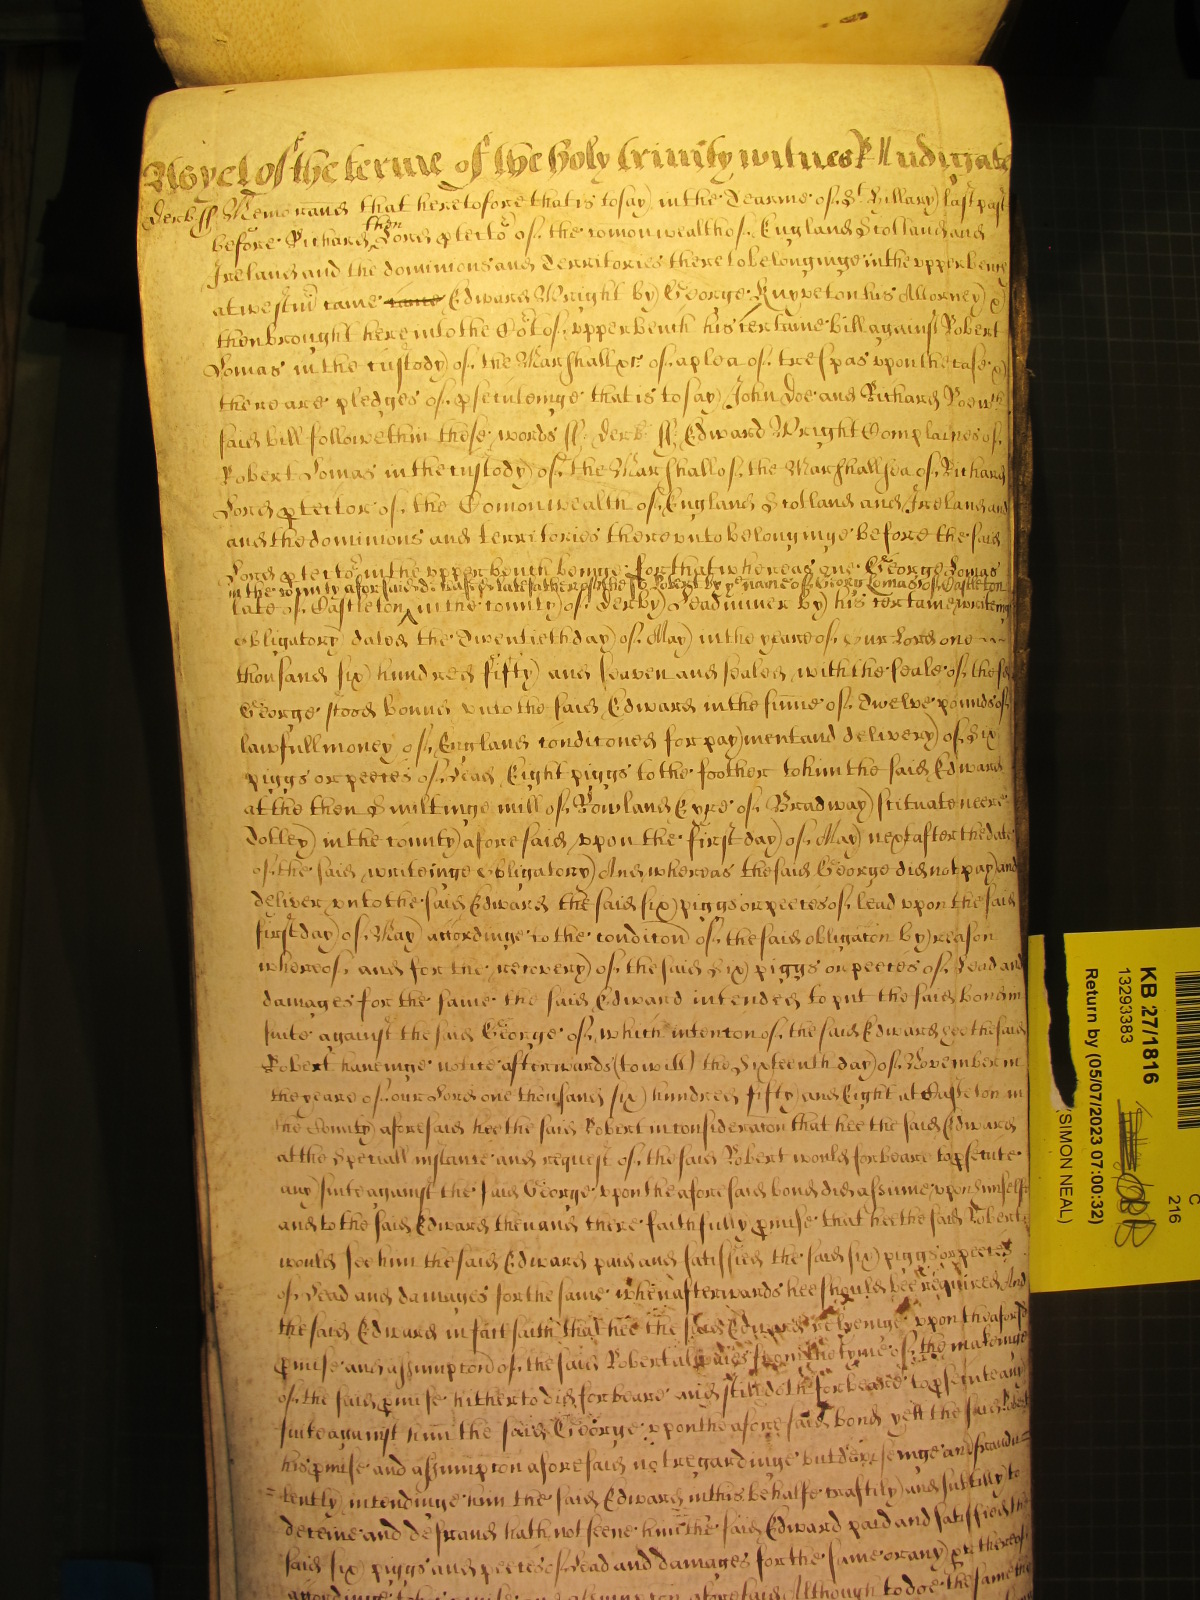 As yet of the terme of the holy trinity witnes R Nudigate
Derb ss Memorand that heretofore that is to say in the Tearme of St Hillary last past
before Richard then Lord p'tector of the comonwealth of England Scotland and
Ireland and the dominions and Territories thereto belonginge in the vpper bench
at westm came came Edward Wright by George Knyveton his Attorney &
then brought here into the Co't of vpper bench his certaine bill against Robert
Lomas in the custody of the Marshall &c of a plea of trespas vpon the case &
there are pledges of p'secuteinge that is to say John Doe and Richard Roe wch
said bill followeth in these words ss Derb ss Edward Wright Complaines of
Robert Lomas in the custody of the Marshall of the Marshallsea of Richard
Lord p'tector of the Comonwealth of England Scotland and Ireland and
and the dominions and territories therevnto belonginge before the said
Lord p'tector in the vpper bench beinge for that whereas one George Lomas
in the county aforesaid deceased late father of the sd Robert by ye name of George Lomas of Castleton
late of Castleton in the county of Derby Leadminer by his certaine writeing
obligatory dated the Twentieth day of May in the yeare of our Lord one
thousand six hundred fifty and seaven and sealed with the seale of the sd
George stood bound vnto the said Edward in the summe of Twelve pounds of
lawfull money of England conditoned for payment and delivery of Six
piggs or peeces of Lead Eight piggs to the foother to him the said Edward
at the then Smiltinge mill of Rowland Eyre of Bradway scituate neere
Dotley in the county aforesaid vpon the first day of May next after the date
of the said writeinge Obligatory And whereas the said George did not pay and
deliver vnto the said Edward the said six piggs or peeces of lead vpon the said
first day of May accordinge to the conditon of the said obligaton by reason
whereof and for the recovery of the said Six piggs or peeces of Lead and
damages for the same the said Edward intended to put the said bond in
suite against the said George of which intenton of the said Edward hee the said
Robert haveinge notice afterwards (to witt) the Sixteenth day of November in
the yeare of our Lord one thousand six hundred fifty and Eight at Castleton in
the County aforesaid hee the said Robert in consideraton that hee the said Edward
at the Speciall instance and request of the said Robert would forbeare to p'secute
any suite against the said George vpon the aforesaid bond did assume vpon himselfe
and to the said Edward then and there faithfully p'mise that hee the said Robert
would see him the said Edward paid and satisfied the said six piggs or peeces
of Lead and damages for the same when afterwards hee should bee required And
the said Edward in fact saith that hee the said Edward relyeinge vpon the aforesd
p'mise and assumpton of the said Robert alwaies from the tyme of the makeinge
of the said p'mise hitherto did forbeare and still doth forbeare to p'secute any
suite against him the said George vpon the aforesaid bond yett the said Robert
his p'mise and assumpton aforesaid not regardinge but deviseinge and fraudu=
=lently intendinge him the said Edward in this behalfe craftily and subtilly to
deceive and defraud hath not seene him the said Edward paid and satisfied the
said six piggs and peeces of Lead and damages for the same or any p't thereof
accordinge to his p'mise and assumpton aforesaid Although to doe the same the
KB 27/1816
13293383
Return by (05/07/2023 07:00:32)
(SIMON NEAL)
C
216